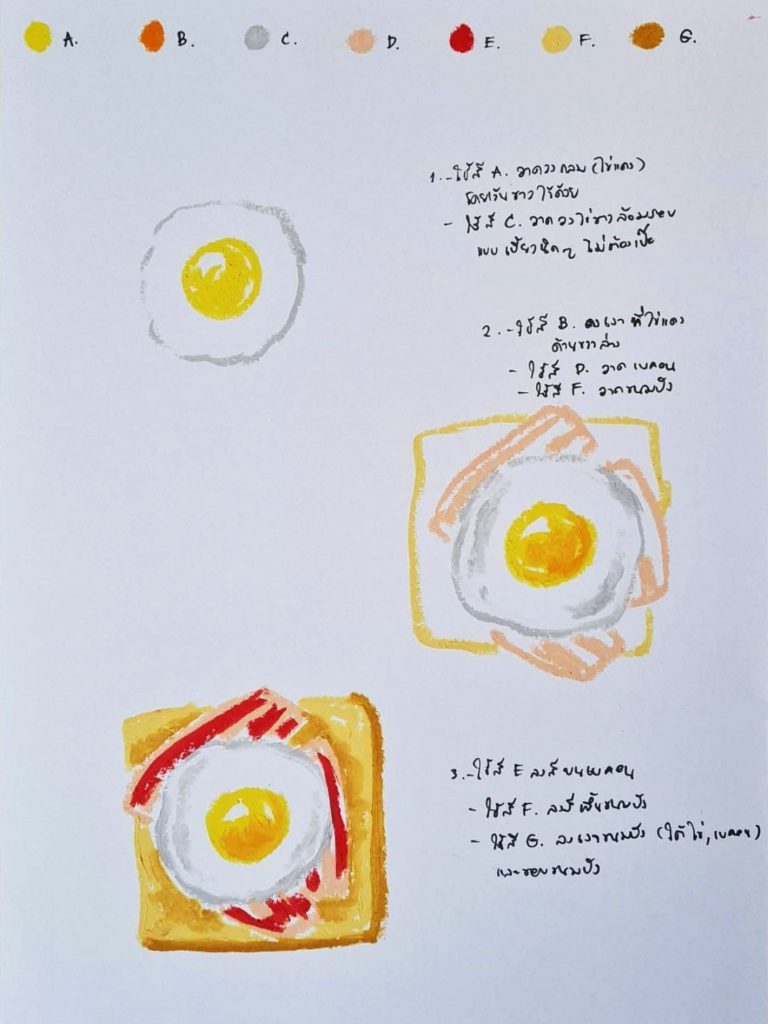 A. B. C. D. E. F. G.
1.-ใช้สี A. วาดวงกลม (ไข่แดง)
โดยเว้นขาวไว้ด้วย
- ใช้สี C. วาดวงไข่ขาวล้อมรอบ
แบบเบี้ยวนิดๆ ไม่ต้องเป๊ะ
2.-ใช้สี B. ลงเงาที่ไข่แดง
ด้านขวาล่าง
- ใช้สี D. วาดเบคอน
- ใช้สี F. วาดขนมปัง
3.-ใช้สี E ลงสีบนเบคอน
- ใช้สี F. ลงสีพื้นขนมปัง
- ใช้สี G. ลงเงาขนมปัง (ใต้ไข่,เบคอน)
และขอบขนมปัง